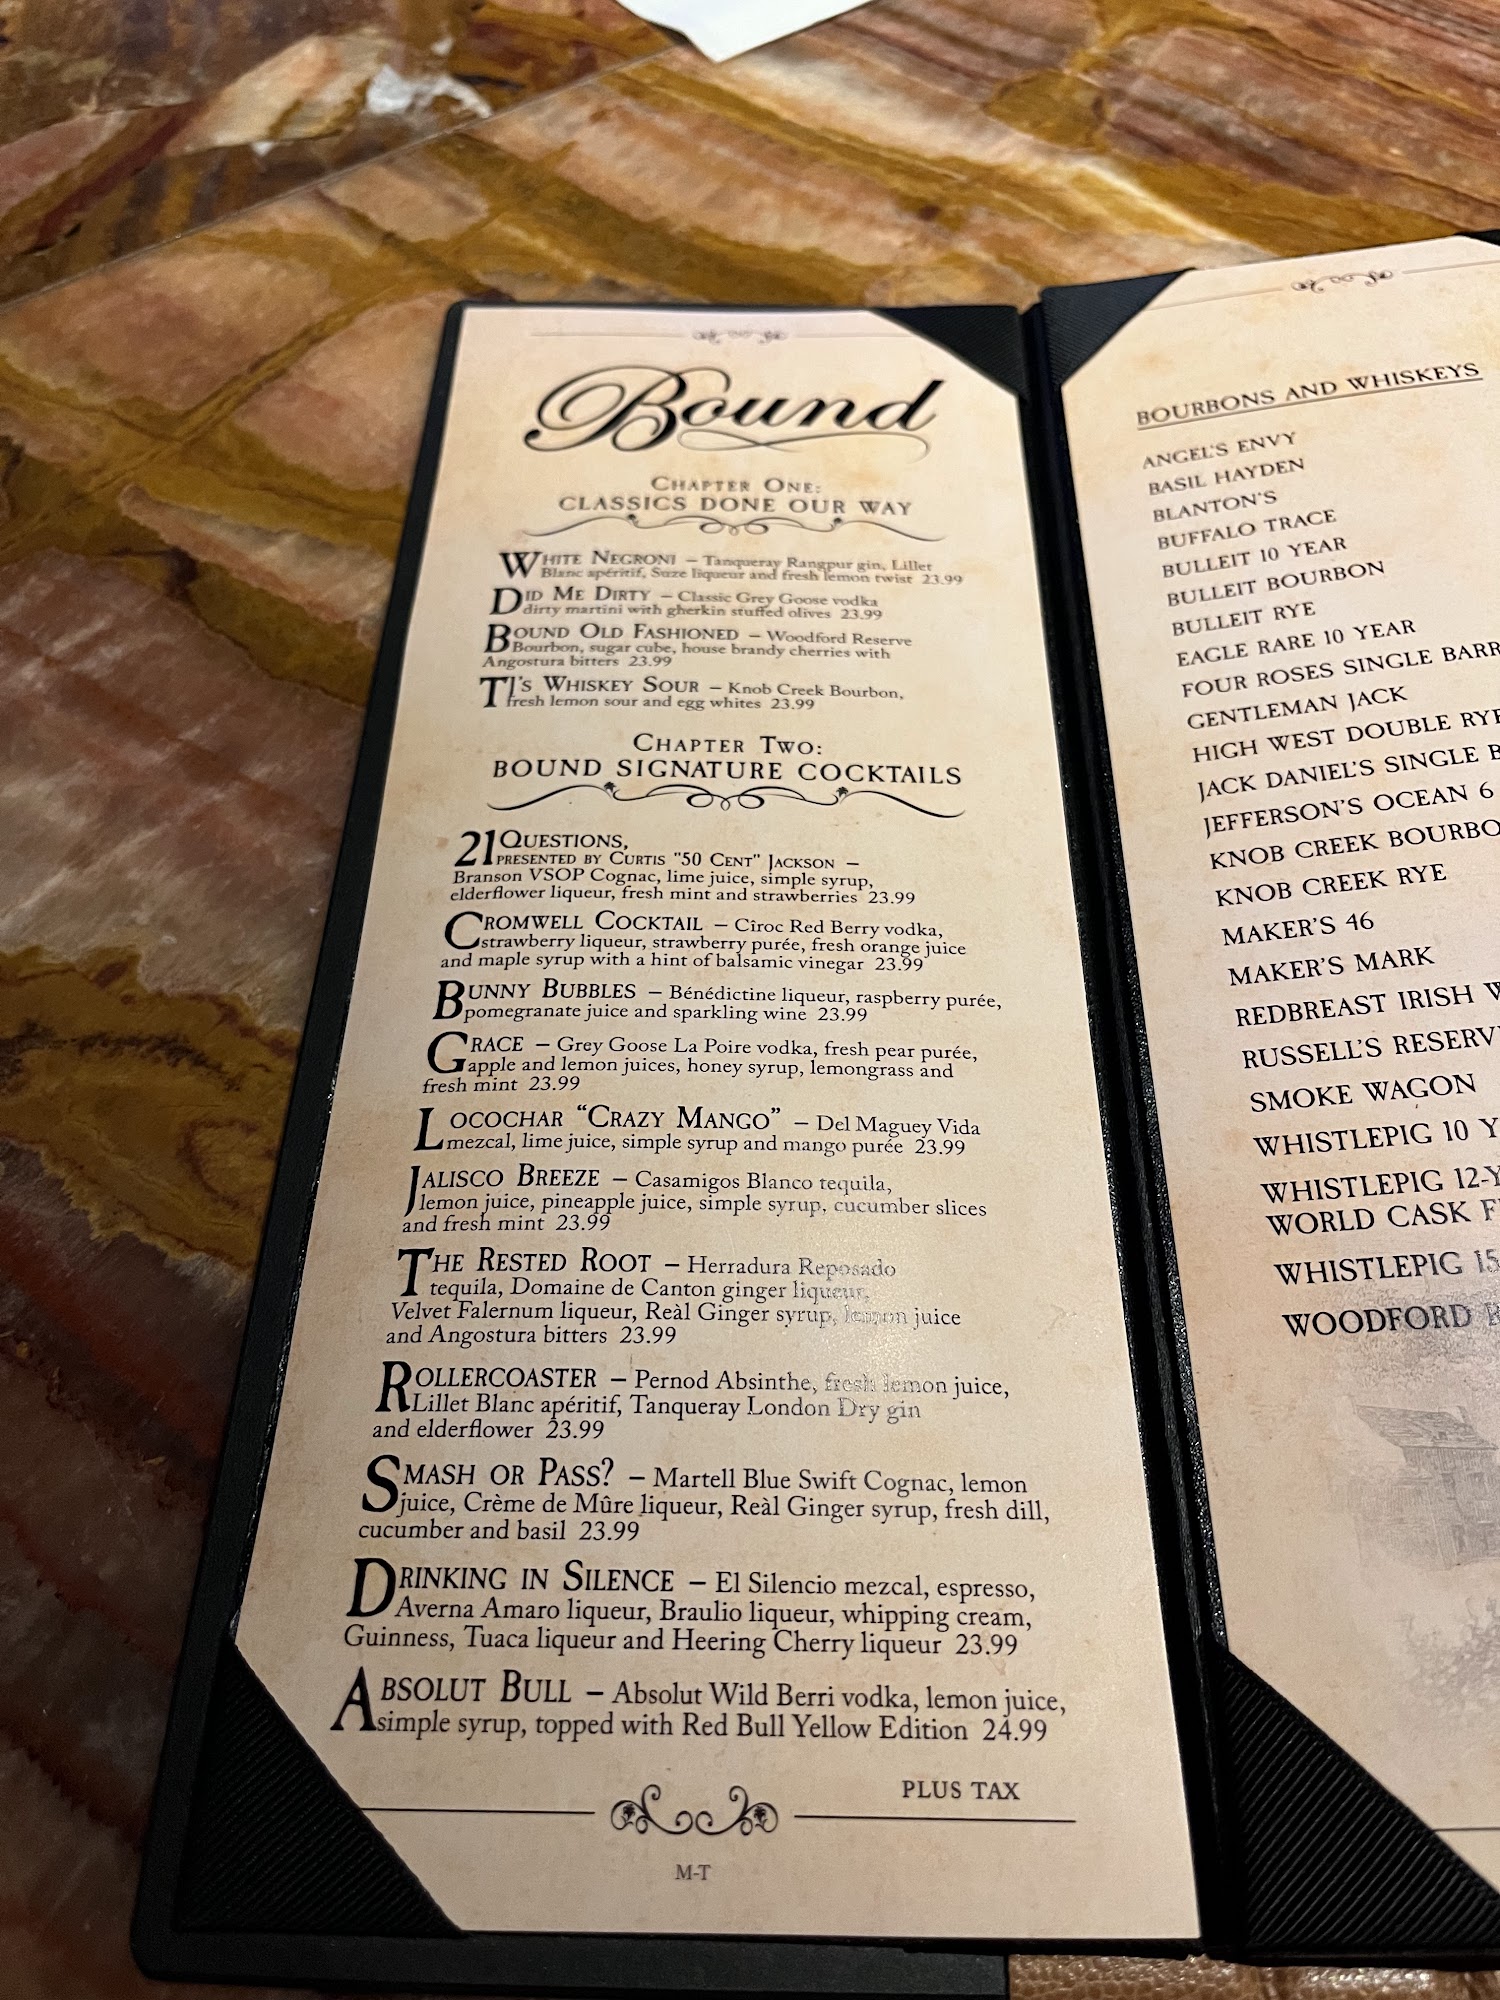 Bound
CHAPTER ONE:
CLASSICS DONE OUR WAY
WHITE NEGRONI – Tanqueray Rangpur gin, Lillet
Blanc apéritif, Suze liqueur and fresh lemon twist 23.99
DID ME DIRTY – Classic Grey Goose vodka
dirty martini with gherkin stuffed olives 23.99
BOUND OLD FASHIONED – Woodford Reserve
Bourbon, sugar cube, house brandy cherries with
Angostura bitters 23.99
TJ'S WHISKEY SOUR – Knob Creek Bourbon,
fresh lemon sour and egg whites 23.99
CHAPTER TWO:
BOUND SIGNATURE COCKTAILS
21 QUESTIONS,
PRESENTED BY CURTIS "50 CENT" JACKSON –
Branson VSOP Cognac, lime juice, simple syrup,
elderflower liqueur, fresh mint and strawberries 23.99
CROMWELL COCKTAIL – Cîroc Red Berry vodka,
strawberry liqueur, strawberry purée, fresh orange juice
and maple syrup with a hint of balsamic vinegar 23.99
BUNNY BUBBLES – Bénédictine liqueur, raspberry purée,
pomegranate juice and sparkling wine 23.99
GRACE – Grey Goose La Poire vodka, fresh pear purée,
apple and lemon juices, honey syrup, lemongrass and
fresh mint 23.99
LOCOCHAR “CRAZY MANGO” – Del Maguey Vida
mezcal, lime juice, simple syrup and mango purée 23.99
JALISCO BREEZE – Casamigos Blanco tequila,
lemon juice, pineapple juice, simple syrup, cucumber slices
and fresh mint 23.99
THE RESTED ROOT – Herradura Reposado
tequila, Domaine de Canton ginger liqueur,
Velvet Falernum liqueur, Reàl Ginger syrup, lemon juice
and Angostura bitters 23.99
ROLLERCOASTER – Pernod Absinthe, fresh lemon juice,
Lillet Blanc apéritif, Tanqueray London Dry gin
and elderflower 23.99
SMASH OR PASS? – Martell Blue Swift Cognac, lemon
juice, Crème de Mûre liqueur, Reàl Ginger syrup, fresh dill,
cucumber and basil 23.99
DRINKING IN SILENCE – El Silencio mezcal, espresso,
Averna Amaro liqueur, Braulio liqueur, whipping cream,
Guinness, Tuaca liqueur and Heering Cherry liqueur 23.99
ABSOLUT BULL – Absolut Wild Berri vodka, lemon juice,
simple syrup, topped with Red Bull Yellow Edition 24.99
PLUS TAX
M-T
BOURBONS AND WHISKEYS
ANGEL'S ENVY
BASIL HAYDEN
BLANTON'S
BUFFALO TRACE
BULLEIT 10 YEAR
BULLEIT BOURBON
BULLEIT RYE
EAGLE RARE 10 YEAR
FOUR ROSES SINGLE BARR
GENTLEMAN JACK
HIGH WEST DOUBLE RYE
JACK DANIEL'S SINGLE B
JEFFERSON'S OCEAN 6
KNOB CREEK BOURBO
KNOB CREEK RYE
MAKER'S 46
MAKER'S MARK
REDBREAST IRISH W
RUSSELL'S RESERV
SMOKE WAGON
WHISTLEPIG 10 Y
WHISTLEPIG 12-Y
WORLD CASK F
WHISTLEPIG 15
WOODFORD